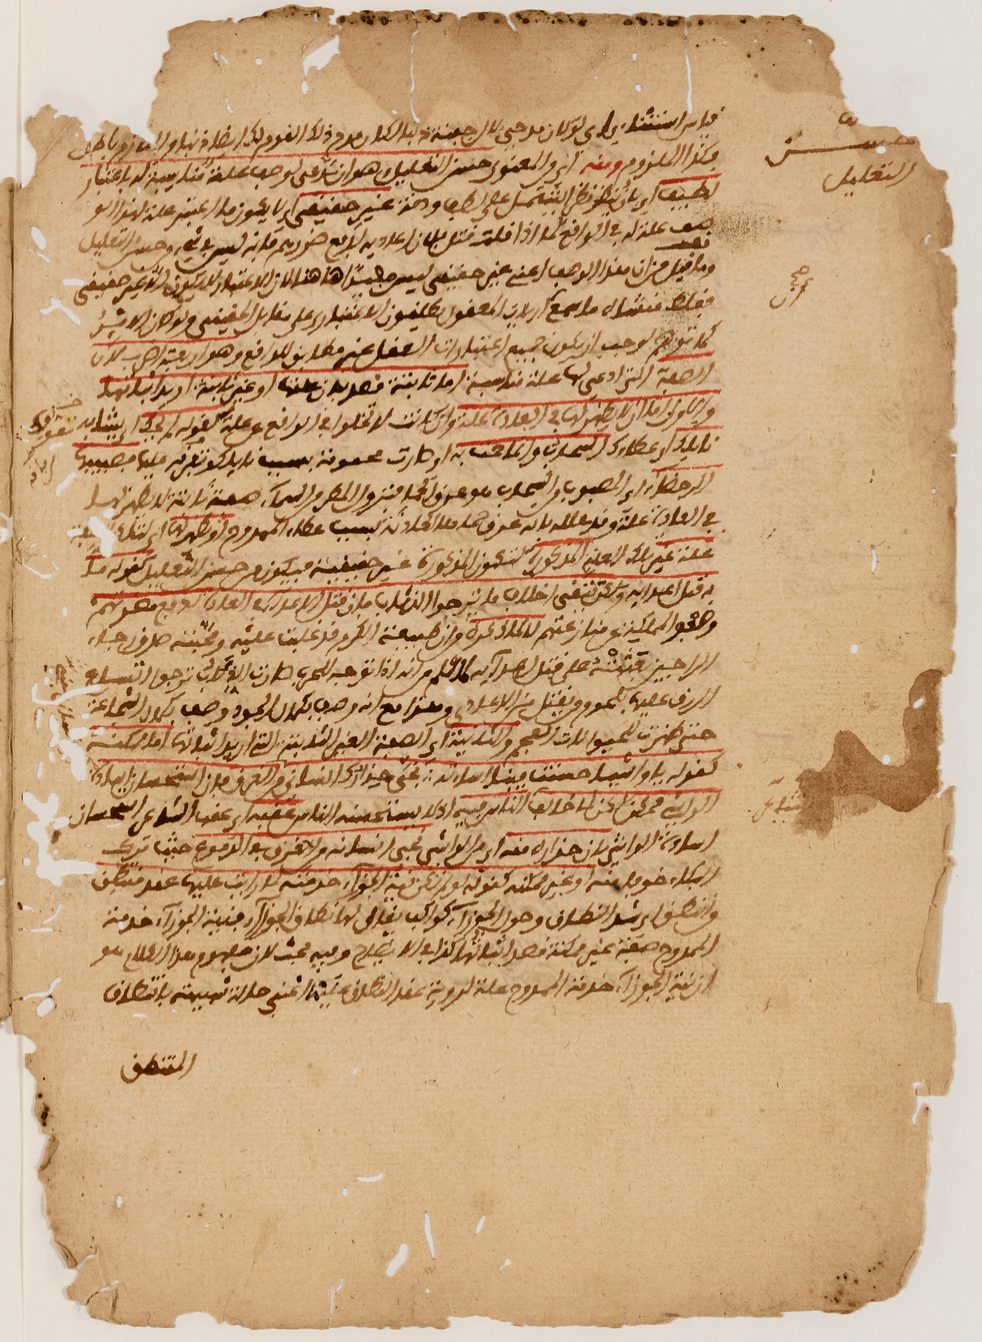 قياس استثنائي اي لو كان مدحي لآل جفنة ذنبا لكان مدح ذلك القوم لك ايضا ذنبا واللازم باطل
فكذا الملزوم ومنه اي ومن المعنوي حسن التعليل وهو ان يدعى لوصف علة مناسبة له باعتبار
لطيف اي بان ينظر نظرا يشتمل على لطف ودقة غير حقيقي اي لا يكون ما اعتبر علة لهذا الو
صف علة له في الواقع كما اذا قلت قتل فلان اعاديه لدفع ضررهم فانه ليس في شيء من حسن التعليل
وما قيل من ان هذا الوصف اعني غير حقيقي ليس ههنا لان الاعتبار لا يكون الا غير حقيقي
فغلط منشاه ما سمع ان ارباب المعقول يطلقون الاعتباري على مقابل الحقيقي ولو كان الامر
كما توهم لوجب ان يكون جميع اعتبارات العقل غير مطابق للواقع وهو اربعة اضرب لان
الصفة التي ادعى لها علة مناسبة اما ثابتة قصد بيان علتها او غير ثابتة اريد اثباتها
والاولى اما ان لا يظهر لها في العادة علة وان كانت لا تخلوا في الواقع عن علة كقوله لم يحك اي يشابه
نايلك اي عطاءك السحاب وانما حمت به اي صارت محمومة بسبب نايلك وتفوقه عليها فصبيبها
الرحضاء اي المصبوب من السحاب هو عرق الحمى فنزول المطر من السماء صفة ثابتة لا يظهر لها
في العادة علة وقد علله بانه عرق حماها الحادثة بسبب عطاء الممدوح او يظهر لها اي لتلك الصفة
علة غير تلك العلة المذكورة لتكون المذكورة غير حقيقية فيكون من حسن التعليل كقوله ما
به قتل اعدايه ولكن يتقي اخلاف ما ترجوا الذئاب فان قتل الاعداء في العادة لدفع مضرتهم
وصفو المملكة عن منازعتهم لا لما ذكره من ان طبيعة الكرم قد غلبت عليه ومحبته صدق رجاء
الراجين بعثته على قتل اعدايه لما علم من انه اذا توجه للحرب صارت الذئاب ترجوا اتساع
الرزق عليها بلحوم من يقتل من الاعادي وهذا مع انه وصف بكمال الجود وصف بكمال الشجاعة
حتى ظهرت للحيوانات العجم والثانية اي الصفة الغير الثابتة التي اريد اثباتها اما ممكنة
كقوله يا واشيا حسنت فينا اساءته نجى حذارك انساني من الغرق فان استحسان اساءة
الواشي ممكن لكن لما خالف الناس فيه اذ لا يستحسنه الناس عقبه اي عقب الشاعر استحسان
اساءة الواشي بان حذاره منه اي من الواشي نجى انسانه من الغرق في الدموع حيث ترك
البكاء خوفا منه او غير ممكنة كقوله لو لم تكن نية الجوزاء خدمته لما رايت عليها عقد منتطق
وانتطق اي شد النطاق وحول الجوزاء كواكب يقال لها نطاق الجوزاء فنية الجوزاء خدمة
الممدوح صفة غير ممكنة قصد اثباتها كذا في الايضاح وفيه بحث لان مفهوم هذا الكلام هو
ان نية الجوزاء خدمة الممدوح علة لروية عقد النطاق عليها اعني حالة شبيهة بانتطاق
المنتطق
حسن
التعليل
الشاعر